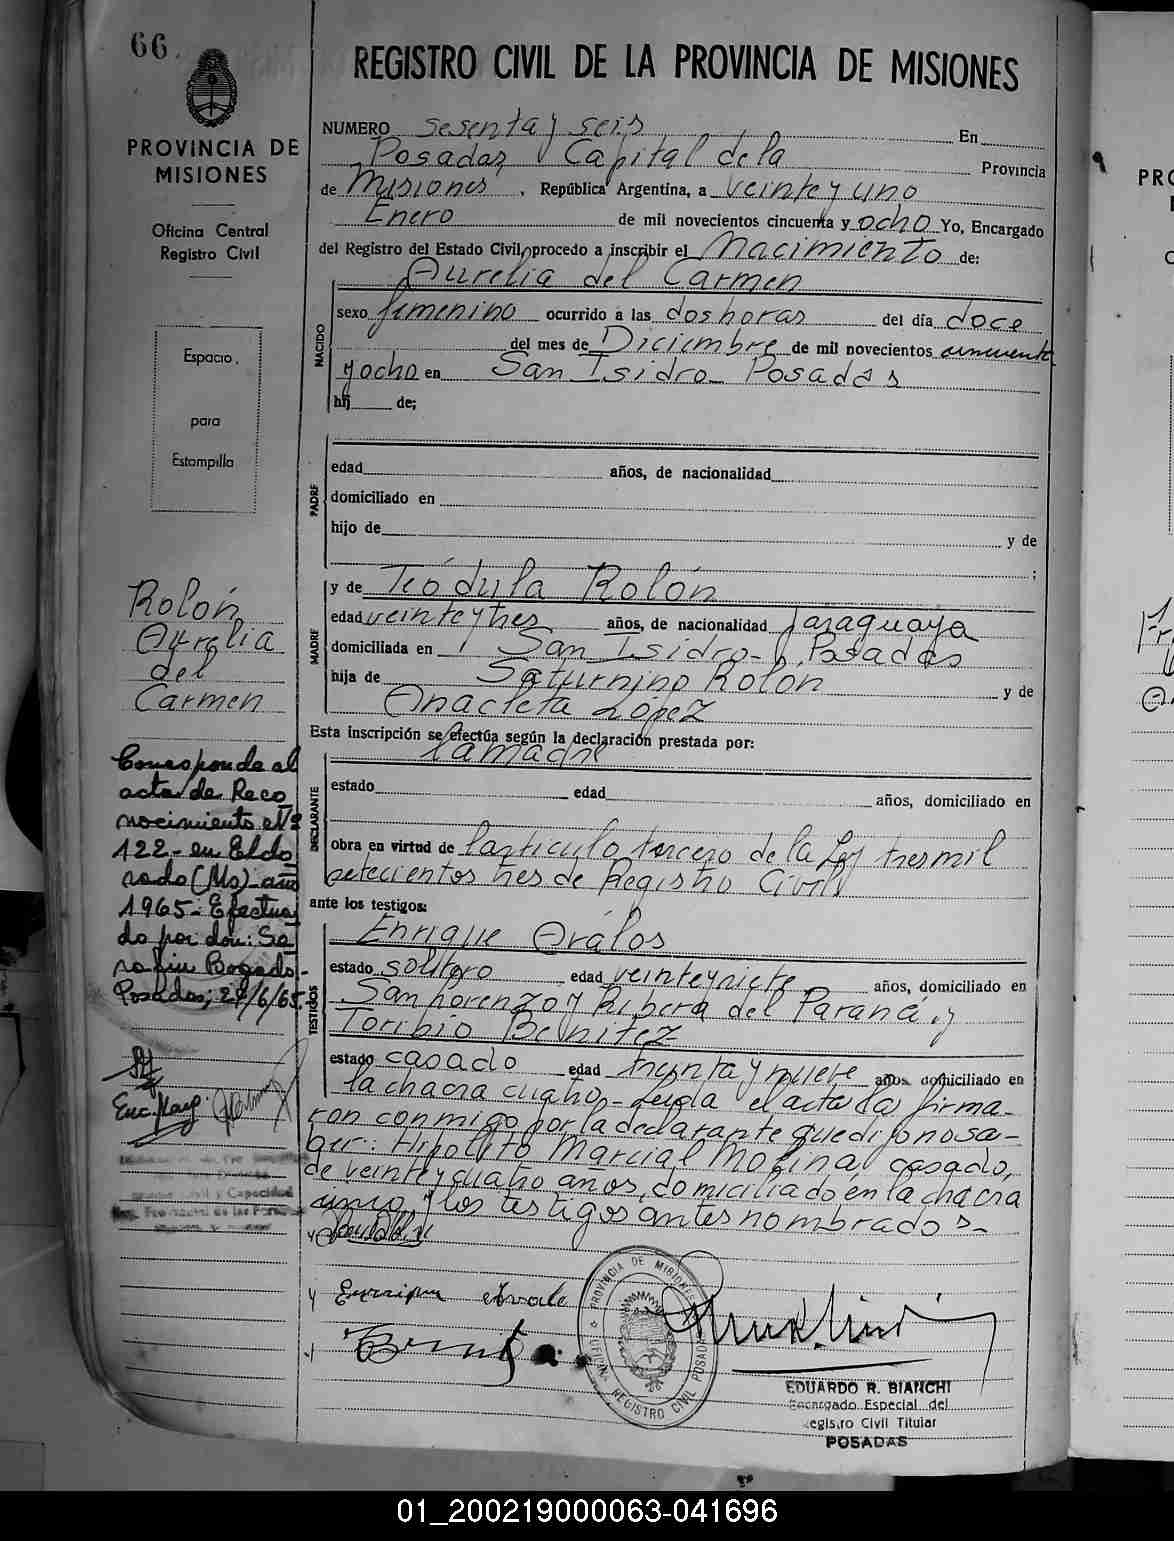 66.
PROVINCIA DE
MISIONES
Oficina Central
Registro Civil
Espacio
para
Estampilla
Rolón
Aurelia
del
Carmen
Corresponde al
acta de Reco
nocimiento Nº
122 - en Eldo
rado (Ms) año
1965 - Efectua
do por don: Se
rafin Bogado -
Posadas, 24/6/65.
Enc. Marg.
REGISTRO CIVIL DE LA PROVINCIA DE MISIONES
NUMERO sesenta y seis En
Posadas, Capital de la Provincia
de Misiones, República Argentina, a veinte y uno
Enero de mil novecientos cincuenta y ocho Yo, Encargado
del Registro del Estado Civil, procedo a inscribir el Nacimiento de:
Aurelia del Carmen
NACIDO
sexo femenino ocurrido a las dos horas del día doce
del mes de Diciembre de mil novecientos cincuenta
y ocho en San Isidro Posadas
hij de;
PADRE
edad años, de nacionalidad
domiciliado en
hijo de y de
;
MADRE
y de Teódula Rolón
edad veinte y tres años, de nacionalidad Paraguaya
domiciliada en San Isidro - Posadas
hija de Saturnino Rolón y de
Anacleta López
Esta inscripción se efectúa según la declaración prestada por:
la madre
DECLARANTE
estado edad años, domiciliado en
obra en virtud de l'artículo tercero de la Ley tres mil
setecientos tres de Registro Civil
ante los testigos:
TESTIGOS
Enrique Avalos
estado soltero edad veinte y siete años, domiciliado en
San Lorenzo y Ribera del Paraná, y
Toribio Benitez
estado casado edad treinta y nueve años domiciliado en
la chacra cuatro - Leida el acta la firma-
ron conmigo por la declarante que dijo no sa-
ber: Hipólito Marcial Molina, casado,
de veinte y cuatro años, domiciliado en la chacra
uno, y los testigos antes nombrados -
PROVINCIA DE MISIONES
OFICINA REGISTRO CIVIL POSADAS
EDUARDO R. BIANCHI
Encargado Especial del
Registro Civil Titular
POSADAS
01_200219000063-041696